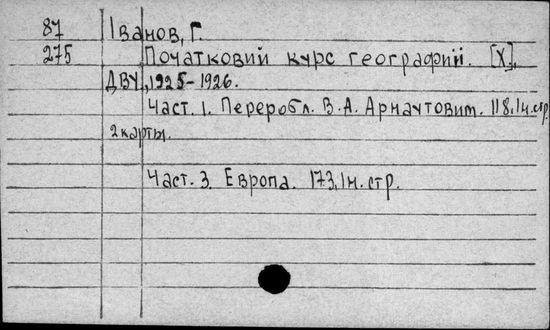 87 Іванов, Г.
275 Початковий курс географии. [Х],
ДВУ, 1925-1926.
Част. 1. Переробл. В.А. Арнаутовит. 118,1н.стр.
2 карты.
Част. 3. Европа. 173,1н.стр.